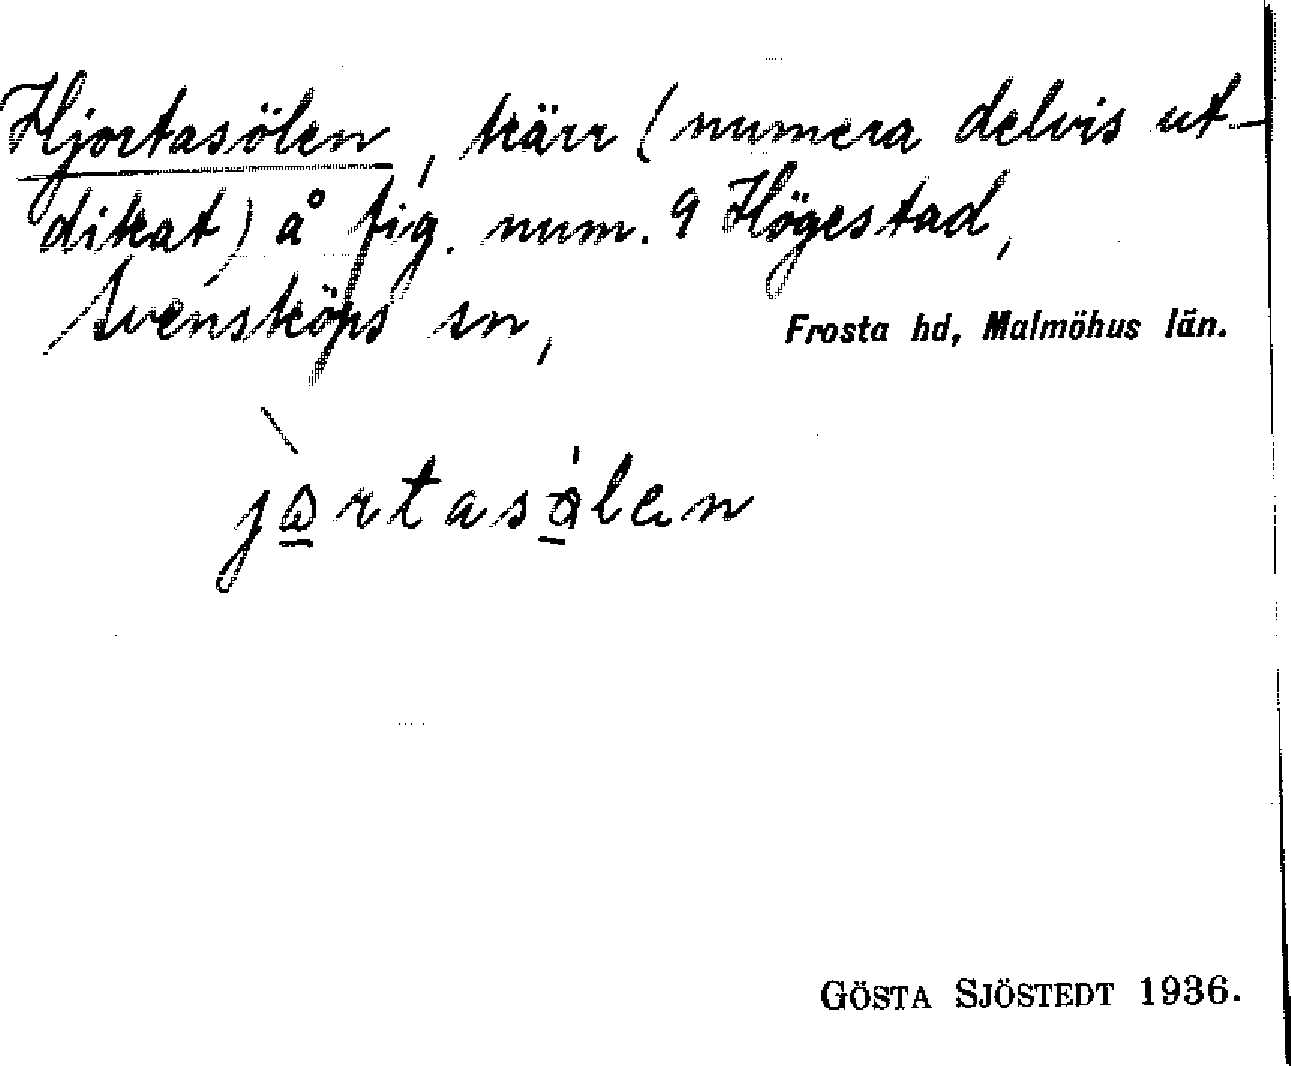 Hjortasölen, kärr (numera delvis ut-
dikat) å fig. num. 9 Högestad,
Svensköps sn,
Frosta hd, Malmöhus län.
GÖSTA SJÖSTEDT 1936.